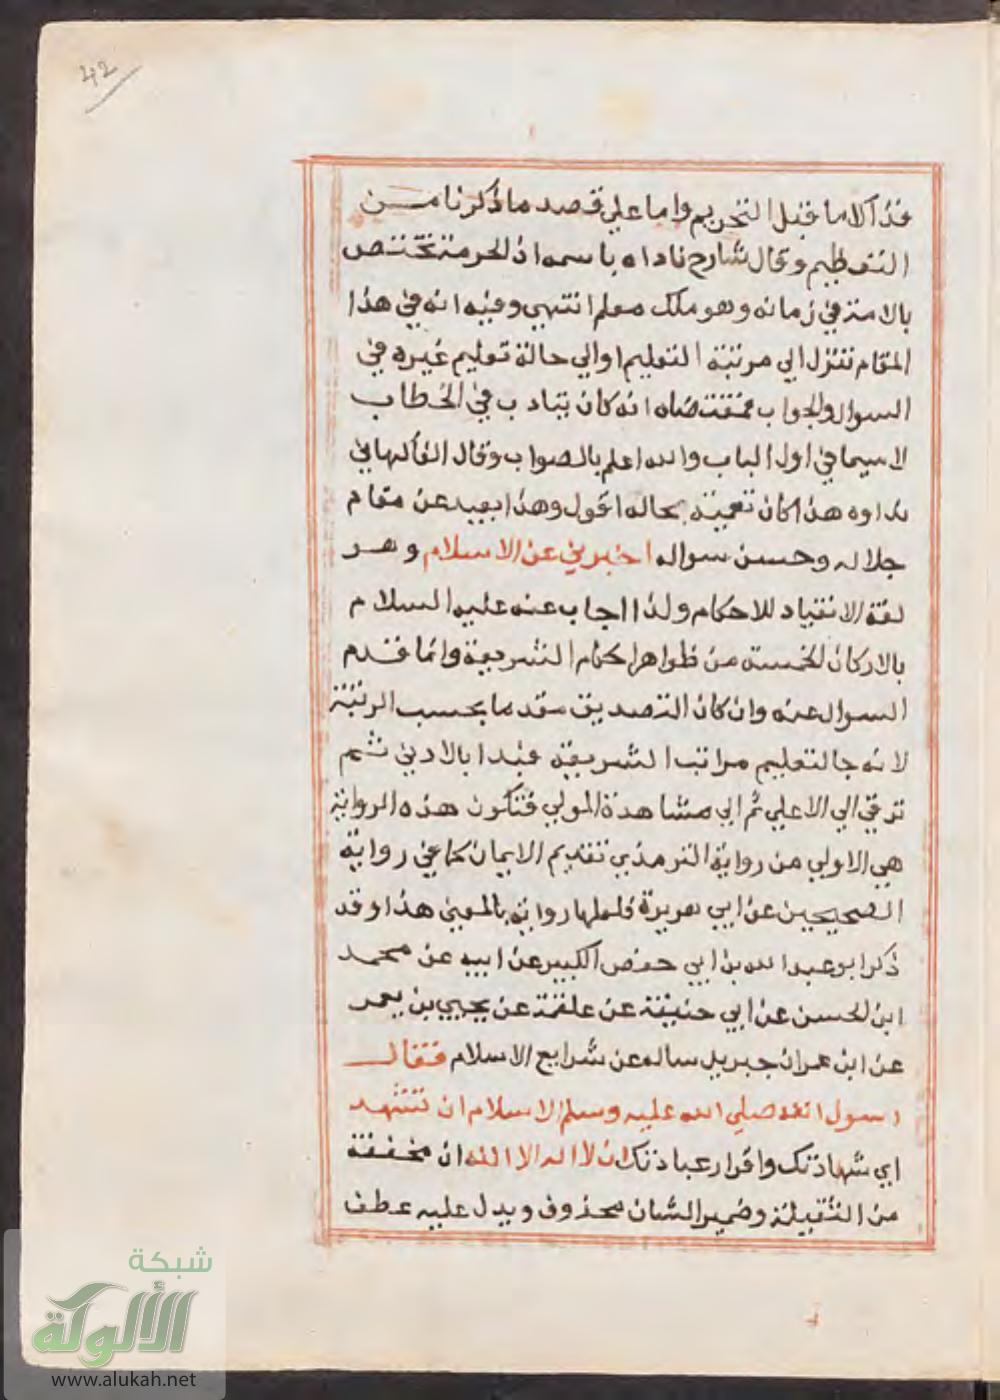 42
فذاك الاما قبل التحريم واما علي قصد ما ذكرنا من
التعظيم وقال شارح ناداه باسمه اذ الحرمة تختص
بالامة في زمانه وهو ملك معلم انتهي وفيه انه في هذا
المقام تنزل الي مرتبة التعليم او الي حالة تعليم غيره في
السوال والجواب فمقتضاه انه كان يتادب في الخطاب
لا سيما في اول الباب والله اعلم بالصواب وقال الفاكهاني
نداوه هذا كان تعمية بحاله اقول وهذا بعيد عن مقام
جلاله وحسن سواله اخبرني عن الاسلام وهو
لغة الانقياد للاحكام ولذا اجاب عنه عليه السلام
بالاركان الخمسة من ظواهر احكام الشريعة وانما قدم
السوال عنه وان كان التصديق مقدما بحسب الرتبة
لانه جا لتعليم مراتب الشريعة فبدا بالادني ثم
ترقي الي الاعلي ثم الي مشاهدة المولي فتكون هذه الرواية
هي الاولي من رواية الترمذي تقديم الايمان كما في رواية
الصحيحين عن ابي هريرة فلعلها رواية بالمعني هذا وقد
ذكر ابو عبد الله بن ابي حفص الكبير عن ابيه عن محمد
ابن الحسن عن ابي حنيفة عن علقمة عن يحيي بن يعمر
عن ابن عمر ان جبريل ساله عن شرايع الاسلام فقال
رسول الله صلي الله عليه وسلم الاسلام ان تشهد
اي شهادتك واقرار عبادتك ان لا اله الا الله ان مخففة
من الثقيلة وضمير الشان محذوف ويدل عليه عطف
شبكة
الألوكة
www.alukah.net